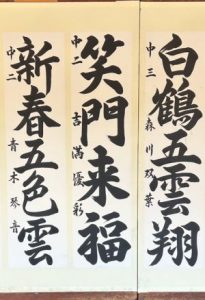 白鶴五雲翔
中三 森川双葉
笑門来福
中二 吉満優彩
新春五色雲
中二 青木琴音